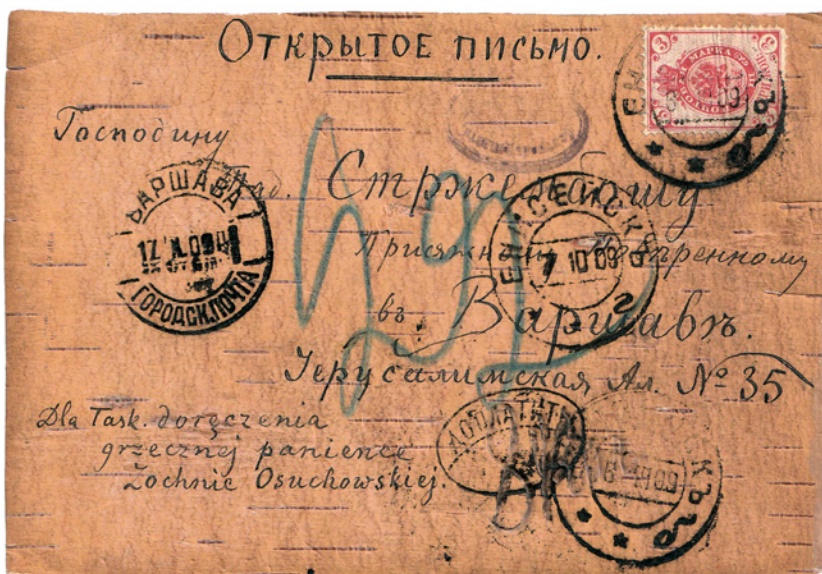 Открытое письмо.
Господину
Тад. Стржембошу
Присяжному Повѣренному
въ Варшавѣ.
Іерусалимская Ал. № 35
Dla Task. doręczenia
grzecznej panience
Zochnie Osuchowskiej.
ВАРШАВА
ГОРОДСК.ПОЧТА
ЕНИСЕЙСКЪ
7 10 09
ДОПЛАТИТЬ
МАРКА
3
3